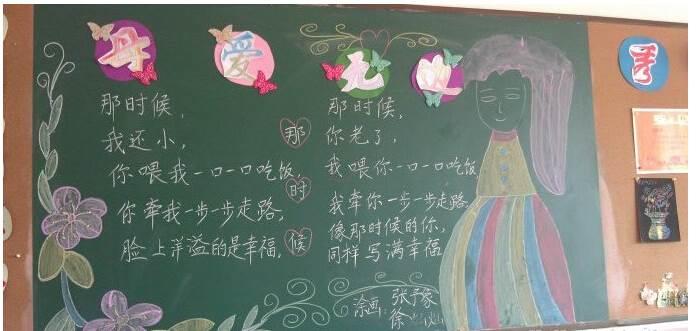 母爱无
那时候
那时候,
我还小,
你喂我一口一口吃饭
你牵我一步一步走路,
脸上洋溢的是幸福,
那时候,
你老了,
我喂你一口一口吃饭
我牵你一步一步走路
像那时候的你,
同样写满幸福
涂画: 张
徐
秀